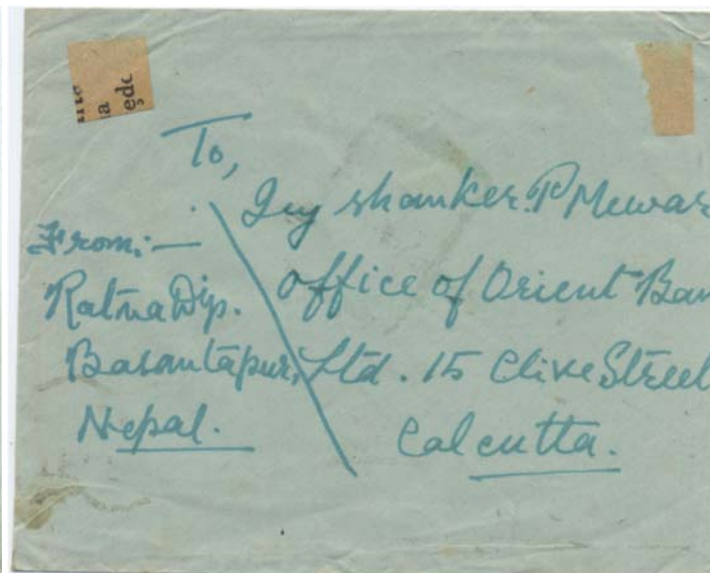 To,
Jey shanker. P Mewar
office of Orient Ban
Ltd. 15 Clive Street
Calcutta.
From:—
Ratna Dip.
Basantapur,
Nepal.